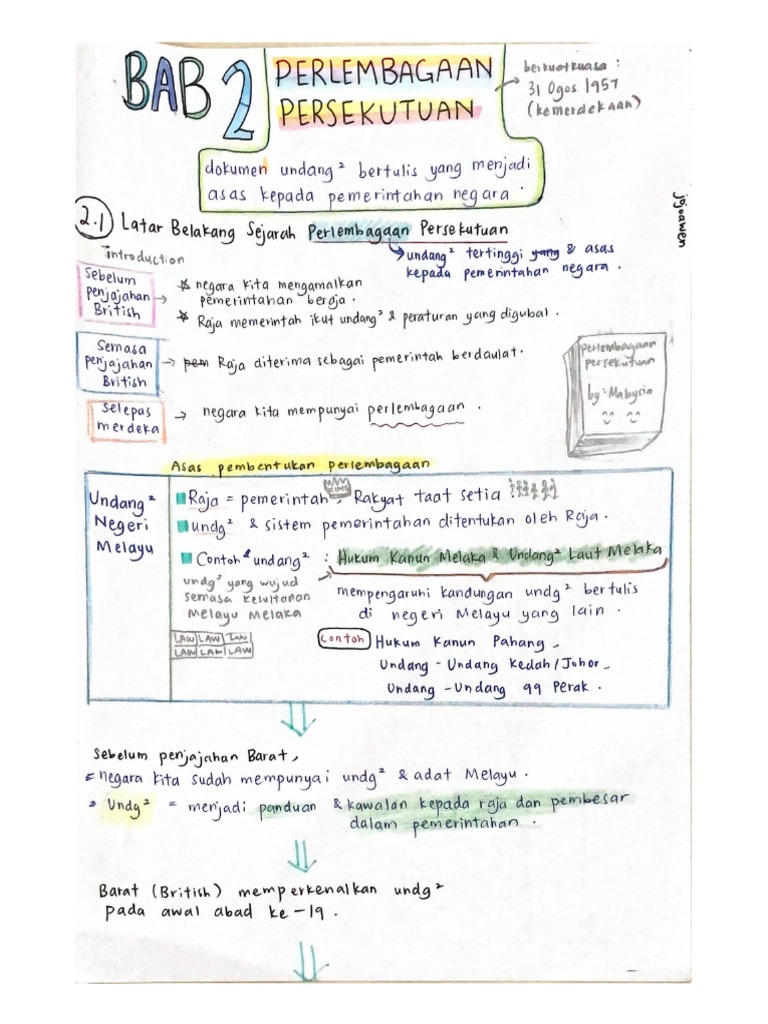 BAB 2 PERLEMBAGAAN
PERSEKUTUAN
berkuatkuasa :
31 Ogos 1957
(kemerdekaan)
dokumen undang² bertulis yang menjadi
asas kepada pemerintahan negara .
2.1 Latar Belakang Sejarah Perlembagaan Persekutuan
undang² tertinggi yang & asas
kepada pemerintahan negara .
jojoawen
introduction
Sebelum
penjajahan
British
negara kita mengamalkan
pemerintahan beraja.
Raja memerintah ikut undang² & peraturan yang digubal .
Semasa
penjajahan
British
pem Raja diterima sebagai pemerintah berdaulat.
Selepas
merdeka
negara kita mempunyai perlembagaan .
Perlembagaan
Persekutuan
by : Malaysia
Asas pembentukan perlembagaan
Undang²
Negeri
Melayu
Raja = pemerintah , Rakyat taat setia
undg² & sistem pemerintahan ditentukan oleh Raja .
Contoh undang² : Hukum Kanun Melaka & Undang² Laut Melaka
undg² yang wujud
semasa kesultanan
Melayu Melaka
mempengaruhi kandungan undg² bertulis
di negeri Melayu yang lain .
LAW LAW LAW
LAW LAW LAW
Contoh Hukum Kanun Pahang ,
Undang - Undang Kedah / Johor ,
Undang - Undang 99 Perak .
Sebelum penjajahan Barat ,
negara kita sudah mempunyai undg² & adat Melayu .
Undg² = menjadi panduan & kawalan kepada raja dan pembesar
dalam pemerintahan .
Barat (British) memperkenalkan undg²
pada awal abad ke -19 .